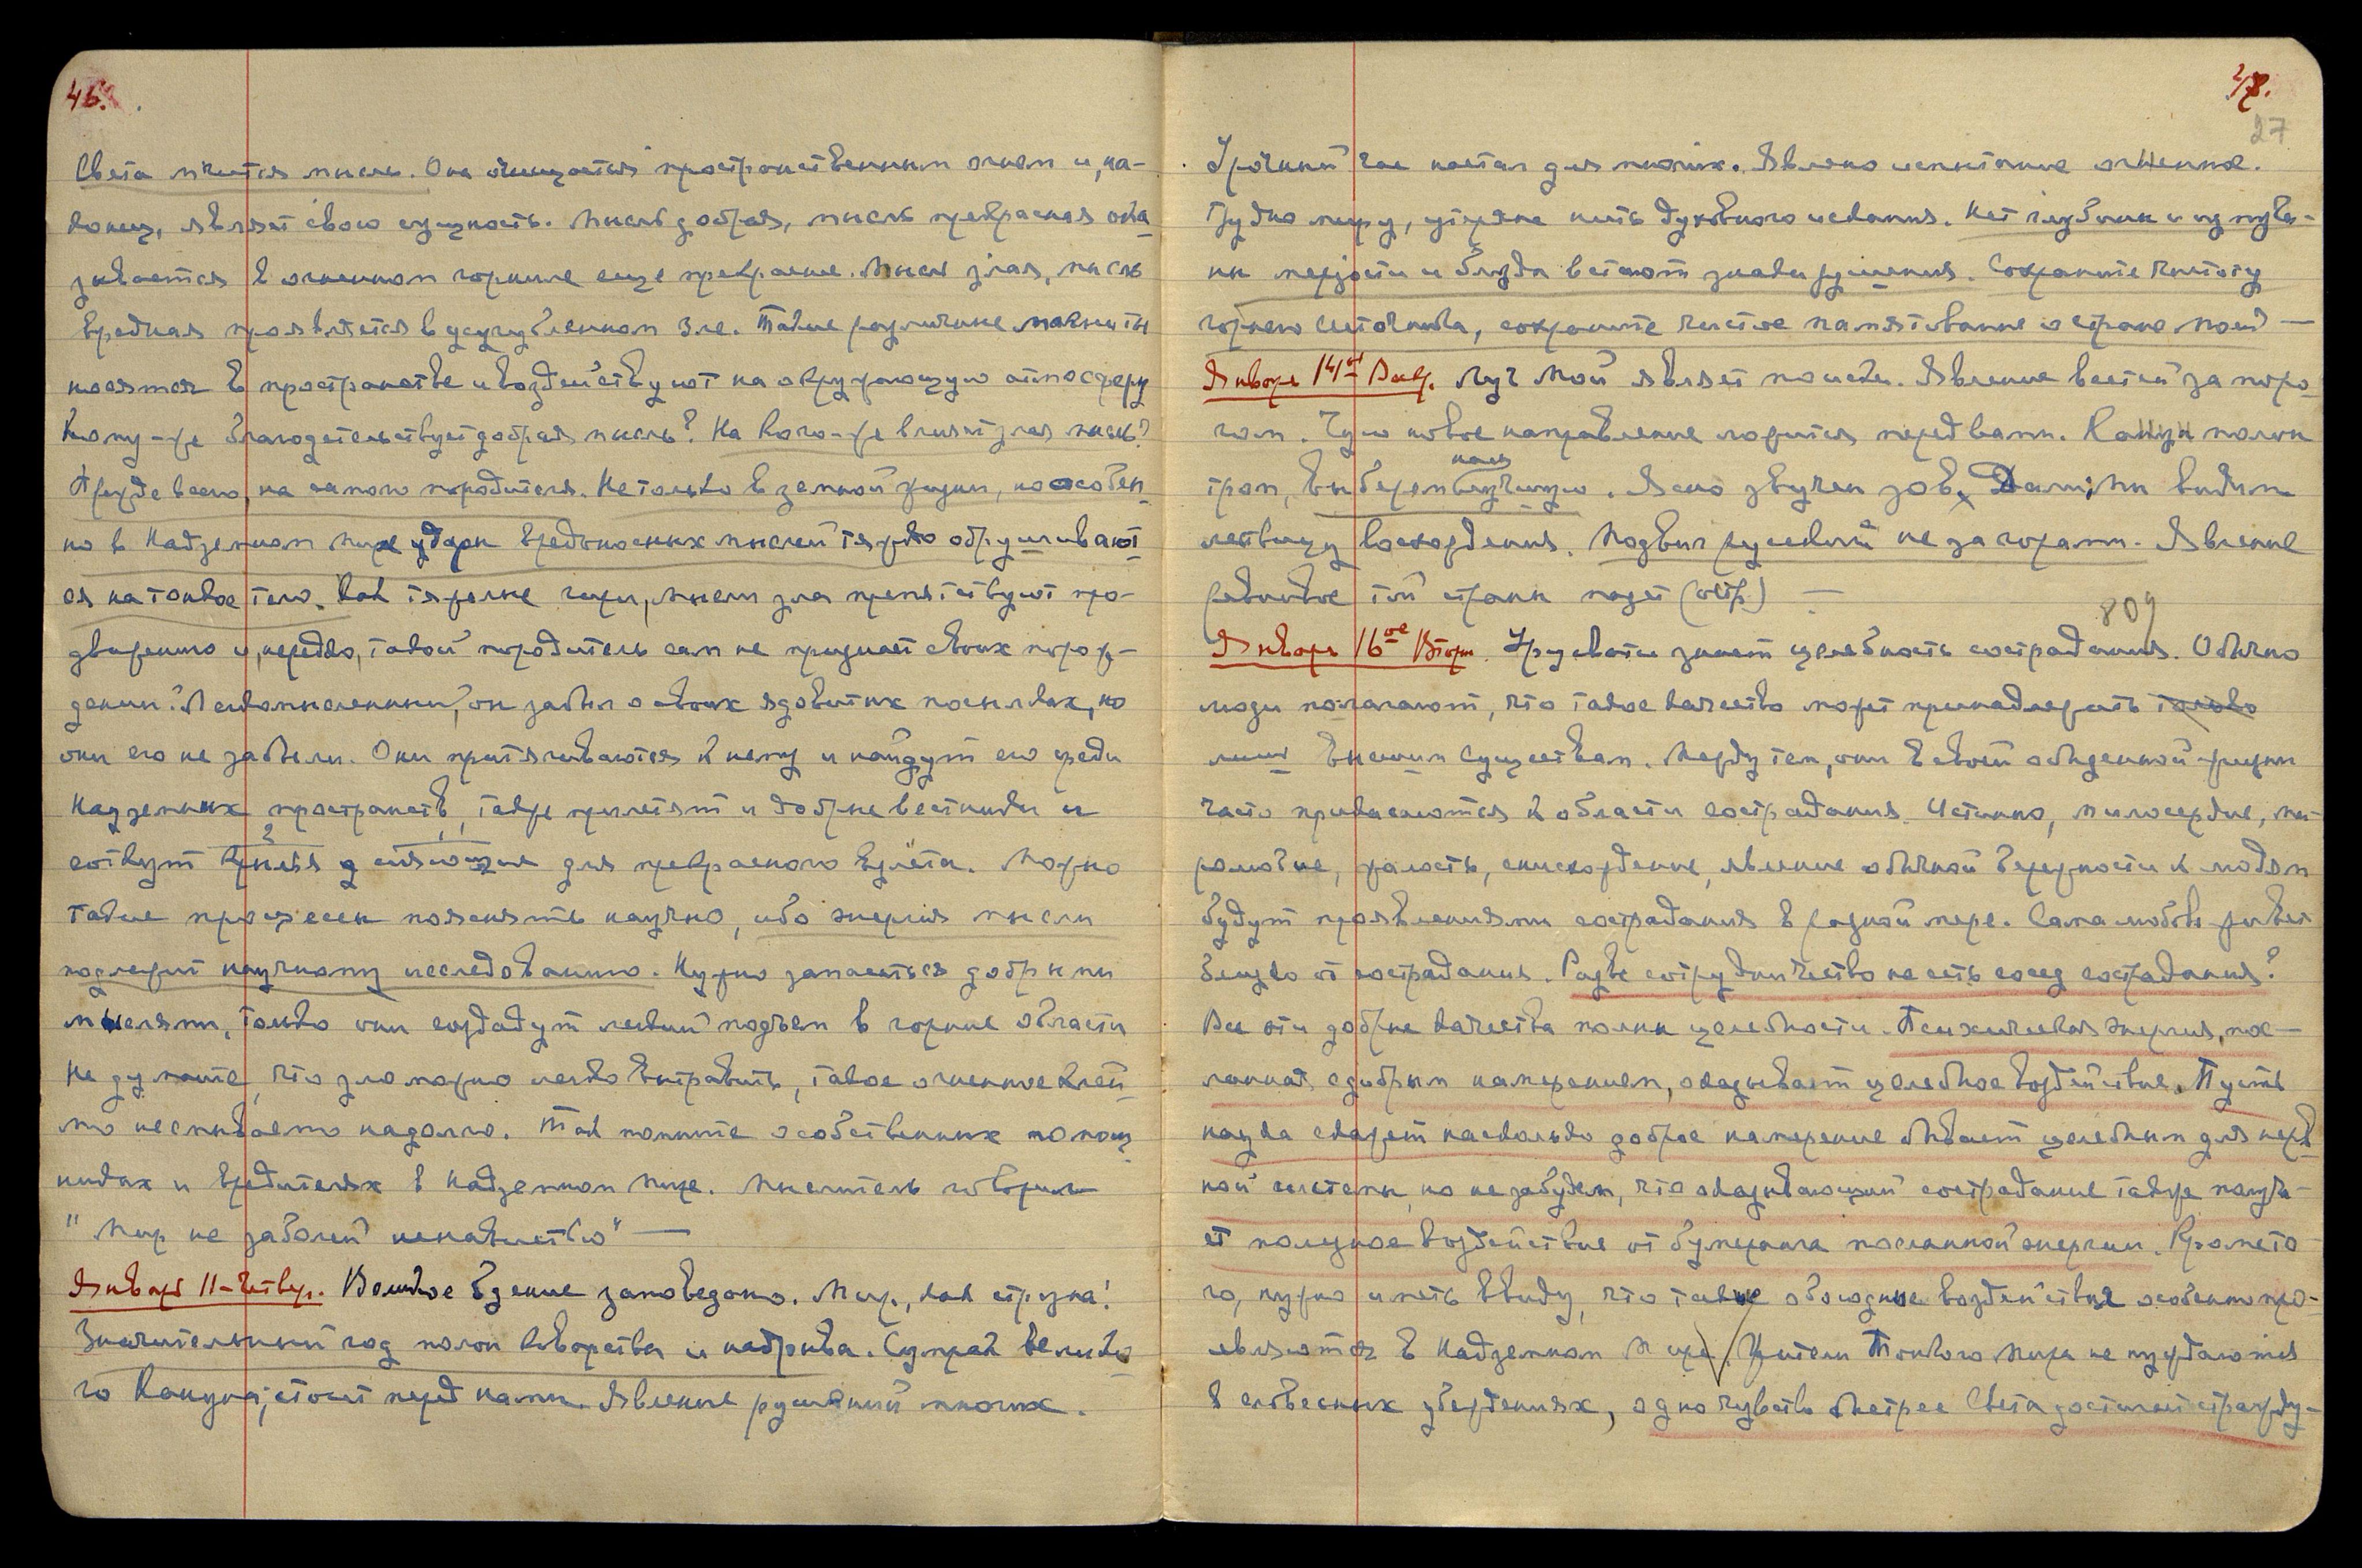 46.
Света мчится мысль. Она очищается пространственным огнем и, на-
конец, являет свою сущность. Мысль добрая, мысль прекрасная ока
зывается в огненном горниле еще прекраснее. Мысль злая, мысль
вредная проявляется в усугубленном зле. Такие различные магниты
носятся в пространстве и воздействуют на окружающую атмосферу
Кому-же благодетельствует добрая мысль? На кого-же влияет злая мысль?
Прежде всего, на самого породителя. Не только в земной жизни, но особен
но в Надземном Мире удары вредоносных мыслей тяжко обрушивают
ся на тонкое тело. Как тяжелые гири, мысли зла препятствуют про-
движению и, нередко, такой породитель сам не признает своих порож-
дений. Легкомысленный, он забыл о своих ядовитых посылках, но
они его не забыли. Они притягиваются к нему и найдут его среди
Надземных пространств, также прилетят и добрые вестники и
соткут крылья сияющие для прекрасного взлёта. Можно
такие процессы пояснять научно, ибо энергия мысли
подлежит научному исследованию. Нужно запастись добрыми
мыслями, только они создадут легкий подъем в горние области
Не думайте, что зло можно легко вытравить, такое огненное клей
мо несмываемо надолго. Так помните о собственных помощ
никах и вредителях в Надземном Мире. Мыслитель говорил
"Мир не заболей ненавистью" —
Январь 11-четвер. Великое бдение заповедано. Мир, как струна!
Значительный год полон коварства и надрыва. Сумрак велико
го Кануна, стоит перед нами. Явление рушений многих.
47.
27
Урочный час настал для многих. Явлено испытание огненное.
Трудно миру, утеряна нить духовного искания. Нет глубины и из тьмы-
ны мерзости и блуда встают знаки рушения. Сохраните чистоту
горнего Источника, сохраните чистое памятование о стране моей —
Январь 14ое Вос. Луч Мой являет поиски. Явление вестей за поро
гом. Чую новое направление ложится перед вами. Канун полон
нами
троп, выберем лучшую. Ясно звучен зов. Дали, Мы видим
лествицу восхождения. Подвиг русский не за горами. Явление
той страны
809
Январь 16ое Вторн. Урусвати знает целебность сострадания. Обычно
люди полагают, что такое качество может принадлежать только
лишь высшим Существам. Между тем, они в своей обыденной жизни
часто прикасаются к области сострадания. Истинно, милосердие, ми-
ролюбие, жалость, снисхождение, явление обычной бережности к людям
будут проявлениями сострадания в разной мере. Сама любовь живет
близко от сострадания. Разве сотрудничество не есть сосед сострадания?
Все эти добрые качества полны целебности. Психическая энергия, пос-
ланная с добрым намерением, оказывает целебное воздействие. Пусть
наука скажет насколько доброе намерение бывает целебным для нерв
ной системы, но не забудем, что оказывающий сострадание также получа-
ет полезное воздействие от бумеранга посланной энергии. Кроме то
го, нужно иметь ввиду, что такие обоюдные воздействия особенно про-
являются в Надземном Мире. Жители Тонкого Мира не нуждаются
в словесных убеждениях, одно чувство быстрее Света достигает стражду-